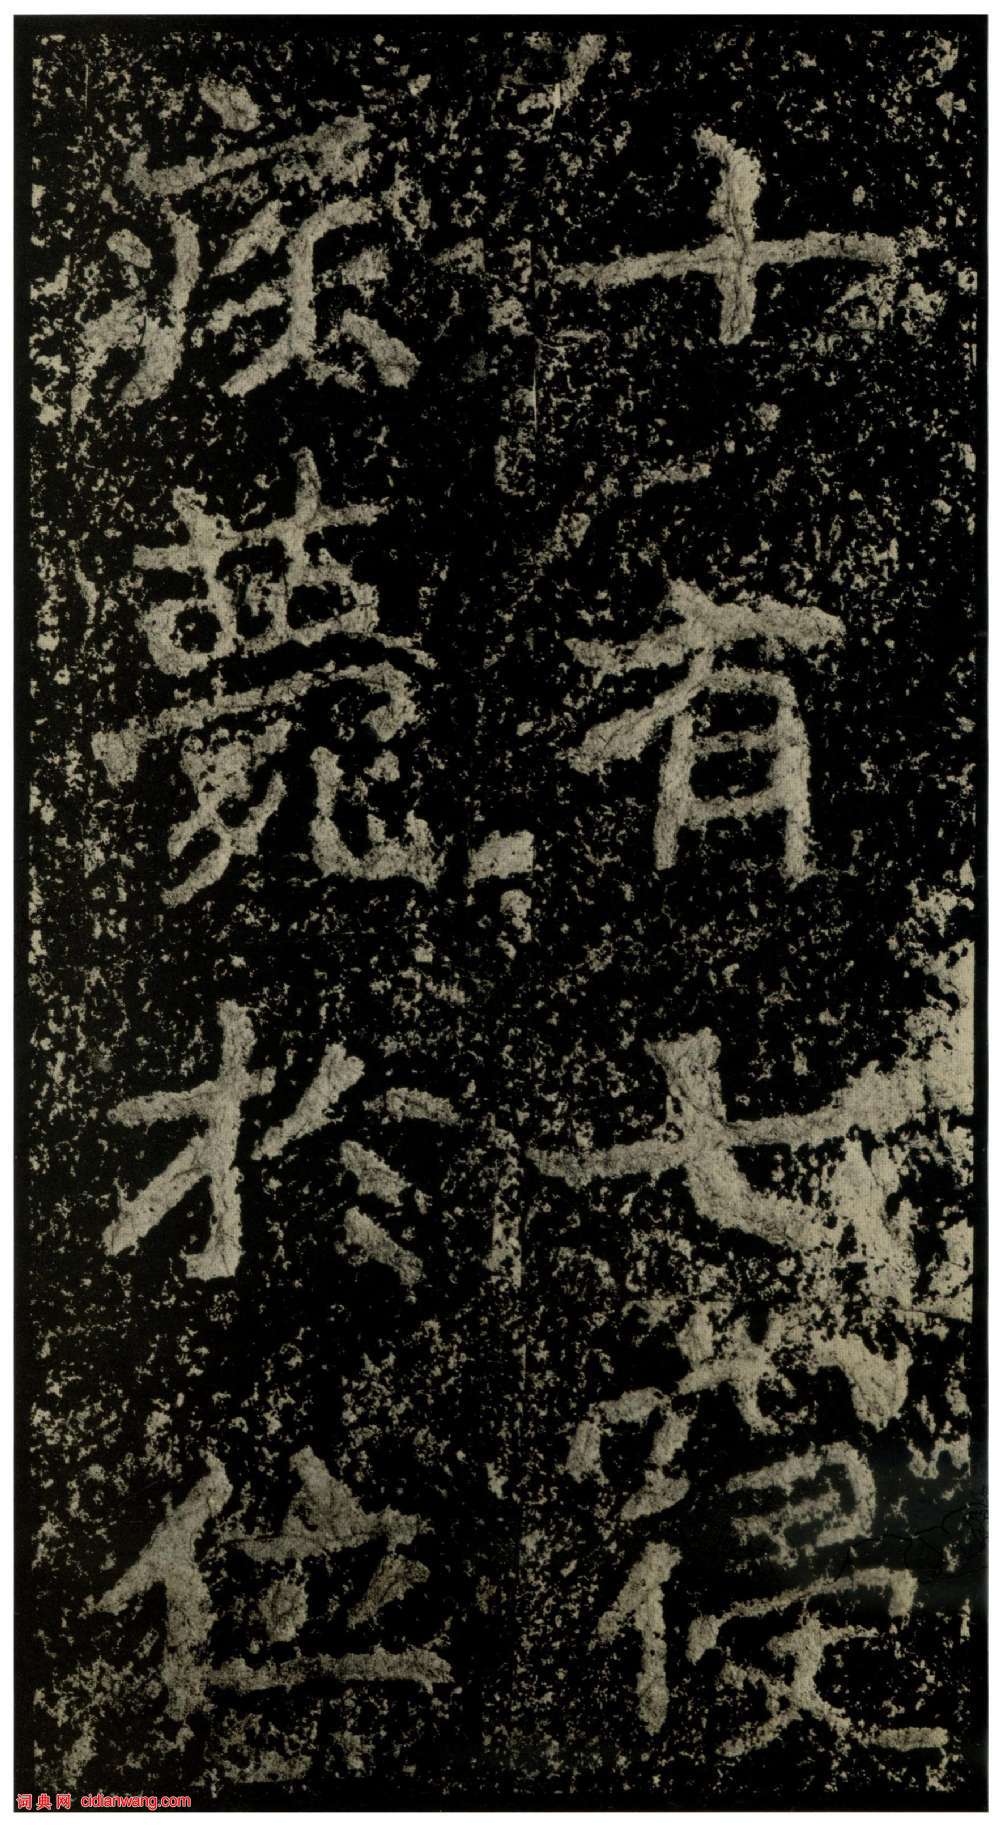 十有七寑
疾薨於位
词典网 cidianwang.com